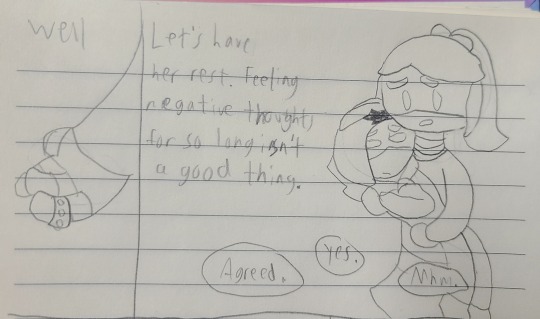 Well
Let's have
her rest. Feeling
negative thoughts
for so long isn't
a good thing.
Yes.
Agreed.
Mhm.